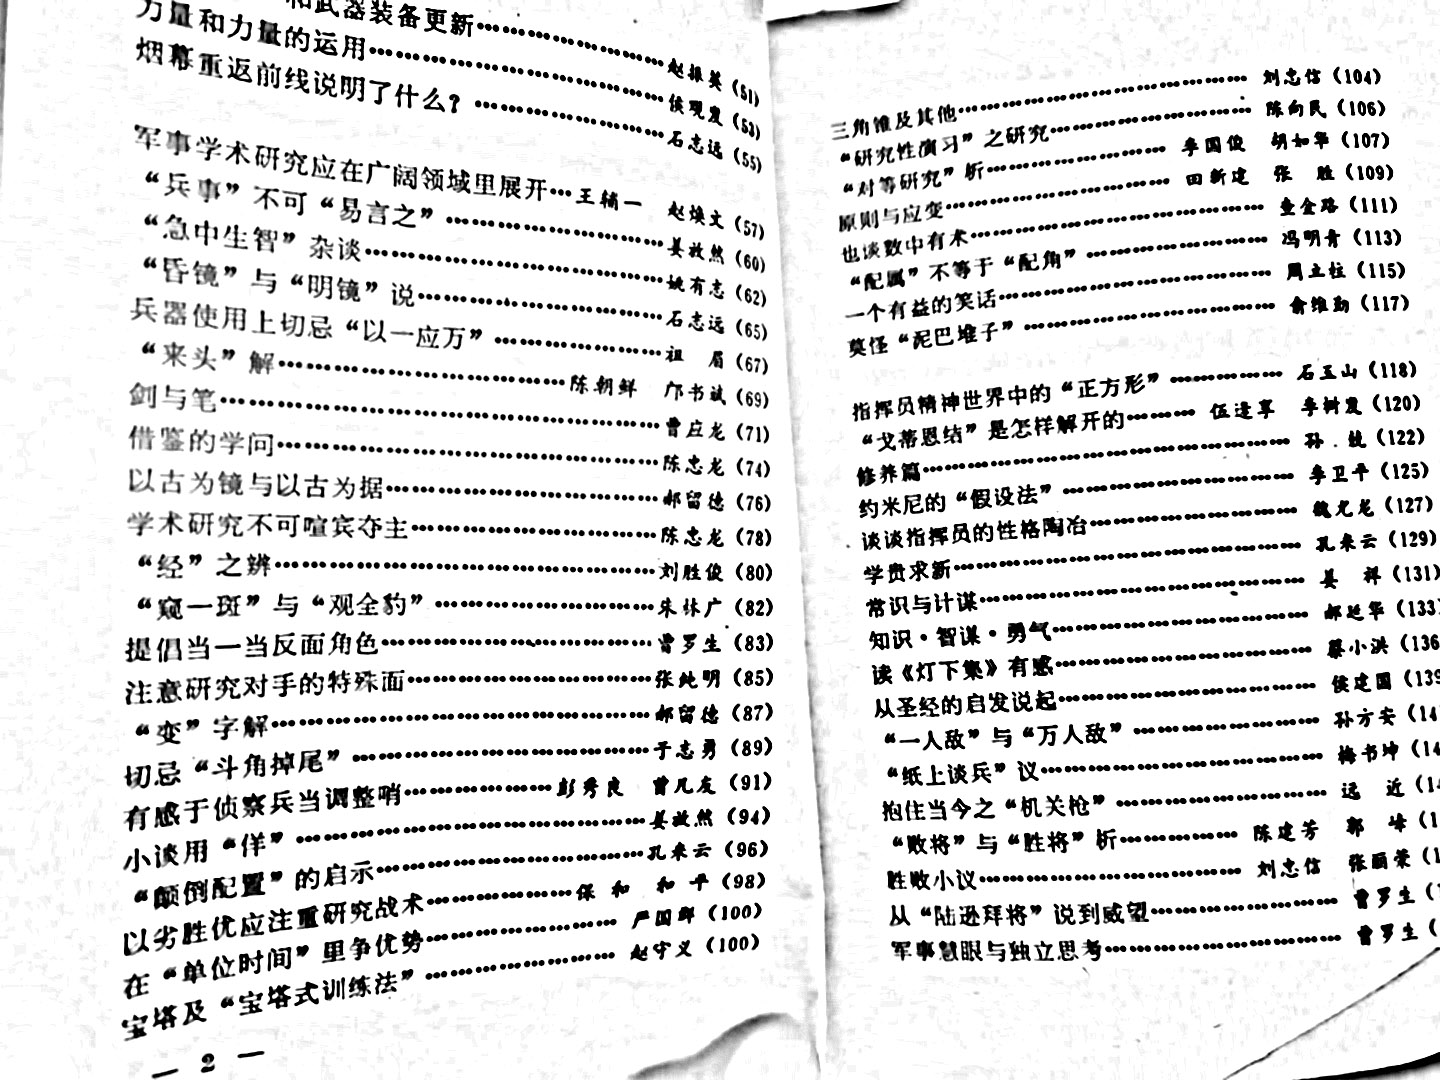 和武器装备更新……………………赵振英（51）
力量和力量的运用……………………侯观发（53）
烟幕重返前线说明了什么？……………………石志远（55）
军事学术研究应在广阔领域里展开…王辅一 赵焕文（57）
“兵事”不可“易言之”……………………姜放然（60）
“急中生智”杂谈……………………姚有志（62）
“昏镜”与“明镜”说……………………石志远（65）
兵器使用上切忌“以一应万”……………………祖 眉（67）
“来头”解……………………陈朝鲜 邝书斌（69）
剑与笔……………………曹应龙（71）
借鉴的学问……………………陈忠龙（74）
以古为镜与以古为据……………………郝留德（76）
学术研究不可喧宾夺主……………………陈忠龙（78）
“经”之辨……………………刘胜俊（80）
“窥一斑”与“观全豹”……………………朱林广（82）
提倡当一当反面角色……………………曹罗生（83）
注意研究对手的特殊面……………………张纯明（85）
“变”字解……………………郝留德（87）
切忌“斗角掉尾”……………………于志勇（89）
有感于侦察兵当调整哨……………彭秀良 曹凡友（91）
小谈用“佯”……………………姜放然（94）
“颠倒配置”的启示……………………孔来云（96）
以劣胜优应注重研究战术……………保 和 和 平（98）
在“单位时间”里争优势……………………严国群（100）
宝塔及“宝塔式训练法”……………………赵守义（100）
— 2 —
三角锥及其他……………………刘忠信（104）
“研究性演习”之研究……………………陈向民（106）
“对等研究”析……………………李国俊 胡如华（107）
原则与应变……………………田新建 张 胜（109）
也谈数中有术……………………查金路（111）
“配属”不等于“配角”……………………冯明青（113）
一个有益的笑话……………………周立柱（115）
莫怪“泥巴堆子”……………………俞维勤（117）
指挥员精神世界中的“正方形”……………石玉山（118）
“戈蒂恩结”是怎样解开的………伍逢享 李树发（120）
修养篇……………………孙 兢（122）
约米尼的“假设法”……………………李卫平（125）
谈谈指挥员的性格陶冶……………………魏光龙（127）
学贵求新……………………孔来云（129）
常识与计谋……………………姜 祥（131）
知识·智谋·勇气……………………郝延华（133）
读《灯下集》有感……………………蔡小洪（136
从圣经的启发说起……………………侯建国（139
“一人敌”与“万人敌”……………………孙方安（14
“纸上谈兵”议……………………梅书坤（14
抱住当今之“机关枪”……………………远 近（14
“败将”与“胜将”析……………陈建芳 郭 峰（1
胜败小议……………………刘忠信 张丽荣（1
从“陆逊拜将”说到威望……………………曹罗生（1
军事慧眼与独立思考……………………曹罗生（